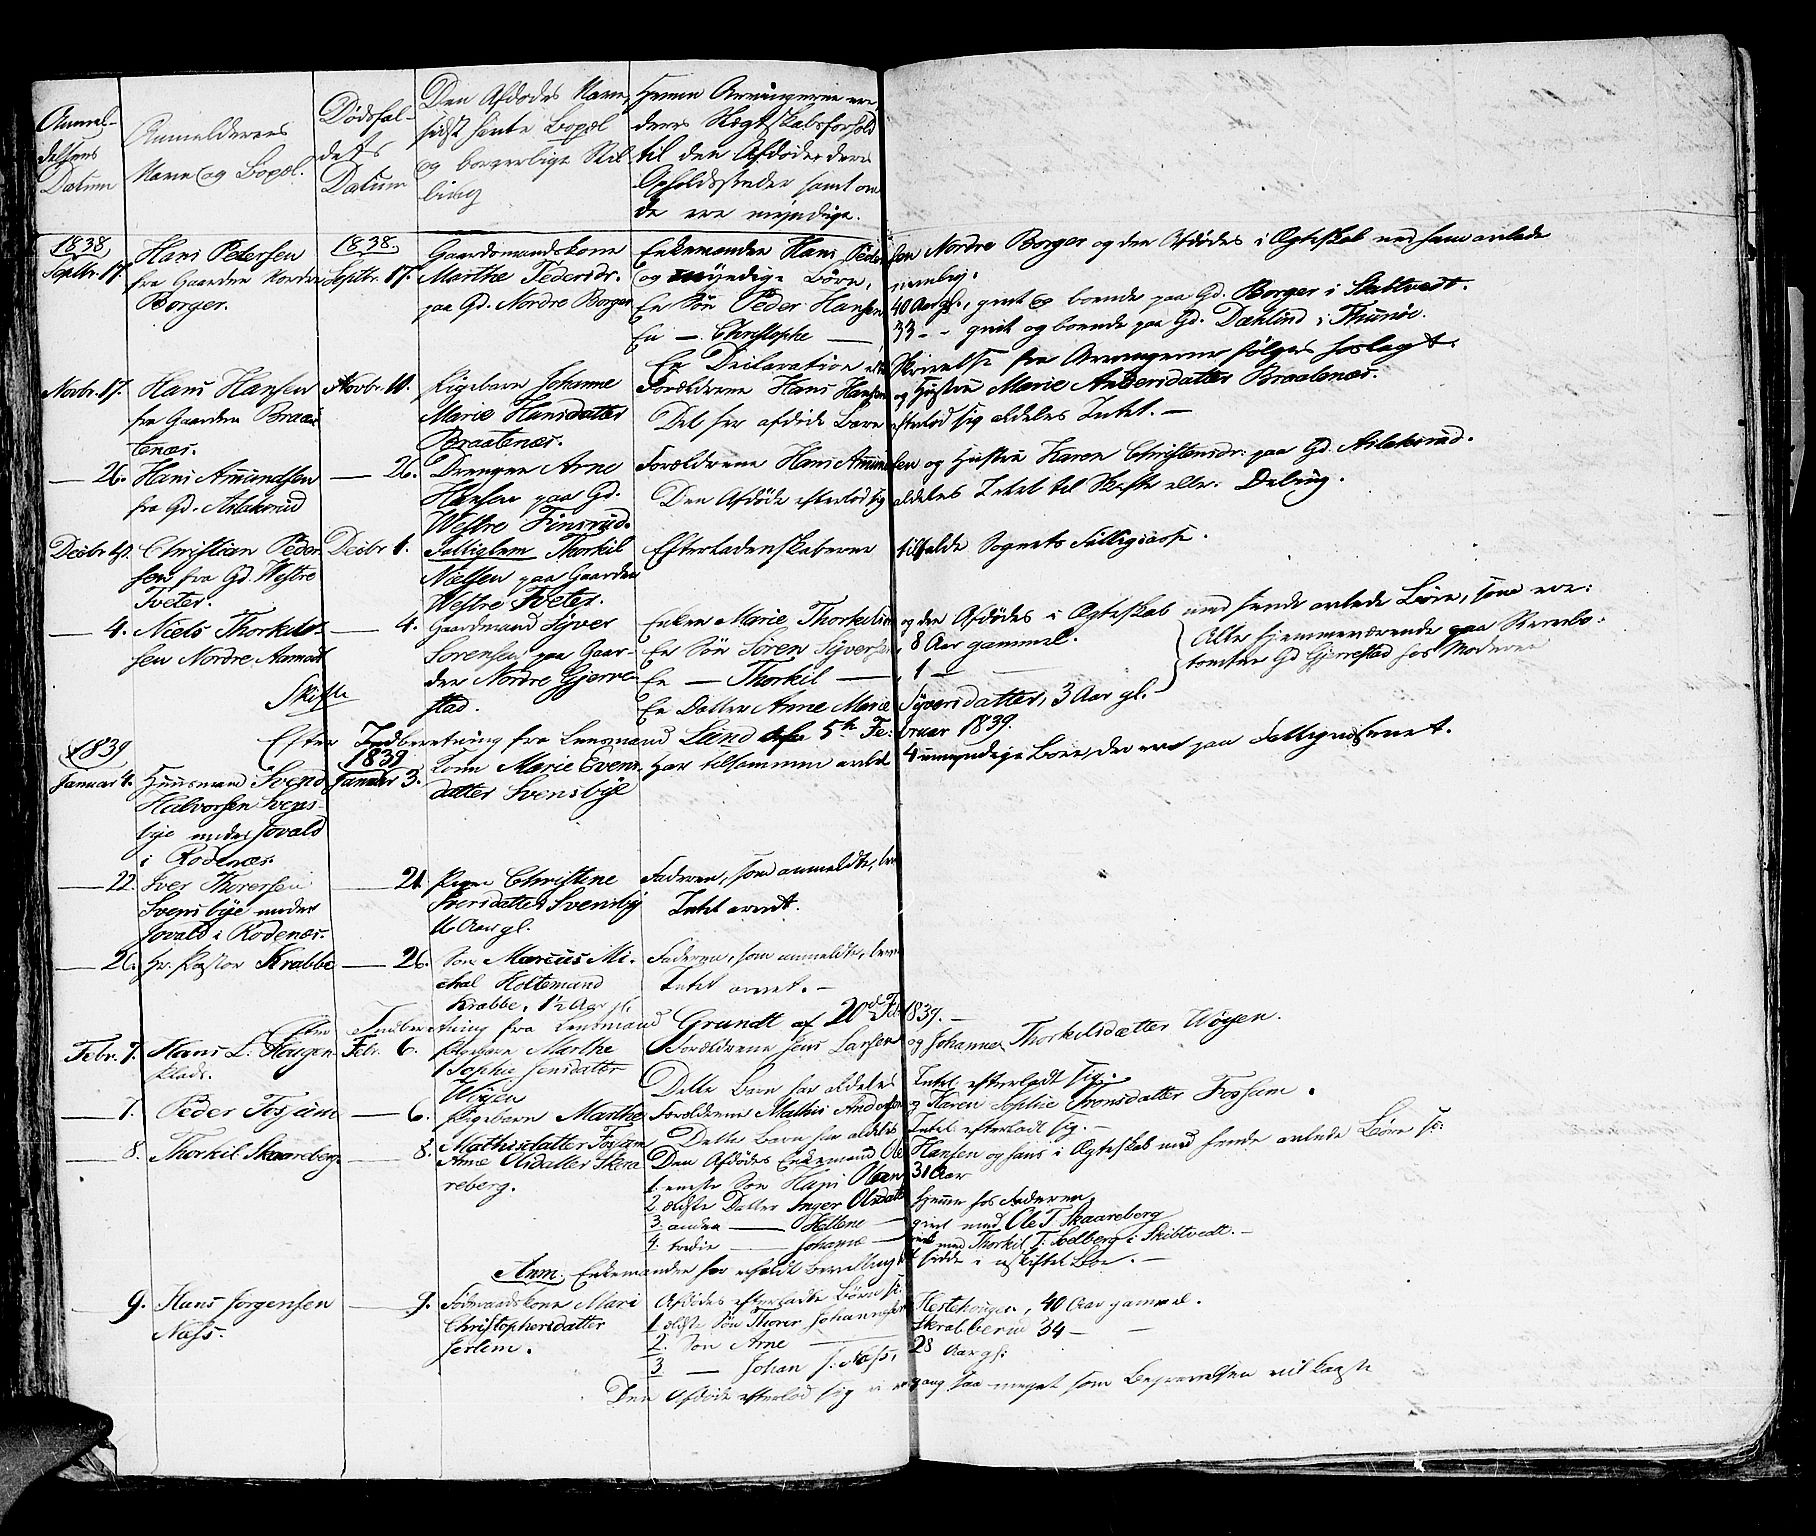 Anmel-
delsens
Datum
Anmelderens
Navn og Bopæl.
Dødsfal-
dets
Datum
Den Afdødes Navn,
sidst havte Bopæl
og borgerlige Stil-
ling
Hvem Arvingerne ere,
deres Slægtskabsforhold
til den Afdøde, deres
Opholdssteder samt om
de ere myndige.
1838.
Septbr. 17.
Hans Petersen
fra Gaarden Nordre
Borger.
1838.
Septbr. 17.
Gaardmandskone
Marthe Pedersdr.
paa Gd. Nordre Borger
Enkemanden Hans Peder sen Nordre Borger og den Afdødes i Ægteskab med ham avlede
og myndige Børn, nemlig:
En Søn Peder Hansen 40 Aar gl., givt og boende paa Gd. Borger i Skibtvedt.
En — Christopher — 33 - - givt og boende paa Gd. Dahlind i Thunøe.
En Declaration fra Arvingerne følger hoslagt.
Novbr. 17.
Hans Hansen
fra Gaarden Braa-
tenæs.
Novbr. 11.
Pigebarn Johanne
Marie Hansdatter
Braatenæs.
Forældrene Hans Hansen og Hustru Marie Andersdatter Braatenæs.
Det her afdøde Barn efterlod sig aldeles Intet. —
— 26.
Hans Amundsen
fra Gd. Aslaksrud
— 26.
Drengen Arne
Hansen paa Gd.
Westre Finsrud.
Forældrene Hans Amund sen og Hustru Karen Christensdr. paa Gd. Aslaksrud.
Den Afdøde efterlod sig aldeles Intet til Skifte eller Deling.
Decbr.
Christian Peder-
sen fra Gd. Westre
Tveter.
Decbr. 1.
Fattiglem Thorkil
Nielsen paa Gaarden
Westre Tveter.
Efterladenskaberne tilfalde Sognets Fattigcasse.
— 4.
Niels Thorkild-
sen Nordre
— 4.
Gaardmand Syver
Sørensen paa Gaar-
den Nordre Gjerre-
stad.
Enken Marie Thorkelsen og den Afdødes i Ægteskab med hende avlede Børn, som ere:
En Søn Søren Syversen, 8 Aar gammel.
En — Thorkil — , 1 —
En Datter Anne Marie Syversdatter, 3 Aar gl.
Alle hjemmeværende paa Stervbo-
tomten Gd Gjerrestad hos Moderen
Skifte
Efter Indberetning fra Lensmand Lund af 5te Februar 1839.
1839
Januar 4.
Huusmand Svend
Halvorsen Svens-
bye under Jovald
i Rødenæs.
1839
Januar 3.
Kone Marie Evens-
datter Svensbye
Har tilsammen avlet 4 umyndige Børn, der ere paa Fattigvæsenet.
— 22.
Iver Thorersen
Svensbye under
Jovald i Rødenæs.
— 21.
Pigen Christine
Iversdatter Svensby
16 Aar gl.
Faderen, som anmeldte,
Intet arvet.
— 26.
Hr. Pastor Krabbe
— 26.
Søn Marcus Mi-
chal Holtemand
Krabbe, 1½ Aar gl.
Faderen, som anmeldte,
Intet arvet. —
Efter Indberetning fra Lensmand Grundt af 20de Feb 1839. —
Febr. 7.
Hans L. Haugen
Febr. 6.
Pigebarn Marthe
Sophie Jensdatter
Wøyen
Forældrene Jens Larsen og Johanne Thorkelsdatter Wøyen.
Dette Barn har aldeles Intet efterladt sig.
— 7.
Peder Fossum
— 6.
Pigebarn Marthe
Mathisdatter Fossum
Forældrene Mathis Andersen og Karen Sophie Svensdatter Fossum.
Dette Barn har aldeles Intet efterladt sig. —
— 8.
Thorkil Skaareberg
— 8.
Anne Olsdatter Skaa-
reberg.
Den Afdødes Enkemand Ole Hansen og hans i Ægteskab med hende avlede Børn s:
1. eneste Søn Hans Olsen 31 Aar
2. ældste Datter Inger Olsdatter hjemme hos Faderen,
3. anden — Hellene — givt med Ole T. Skaareberg
4. tredie — Johanne — givt med Thorkil T. Solberg i Skibtvedt. —
Anm. Enkemanden har erholdt Bevilling at sidde i uskiftet Boe. —
— 9.
Hans Jørgensen
Næss.
— 9.
Føderaadskone Mari
Christophersdatter
Afdødes efterladte Børn s:
1. ældste Søn Thorer Johannesen Hestehougen, 40 Aar gammel.
2. Søn Arne — Skrabberud 34 — —
3 — Johan J. Næss, 28 Aar gl:
Den Afdøde efterlod sig saa meget som Begravelsen vil koste